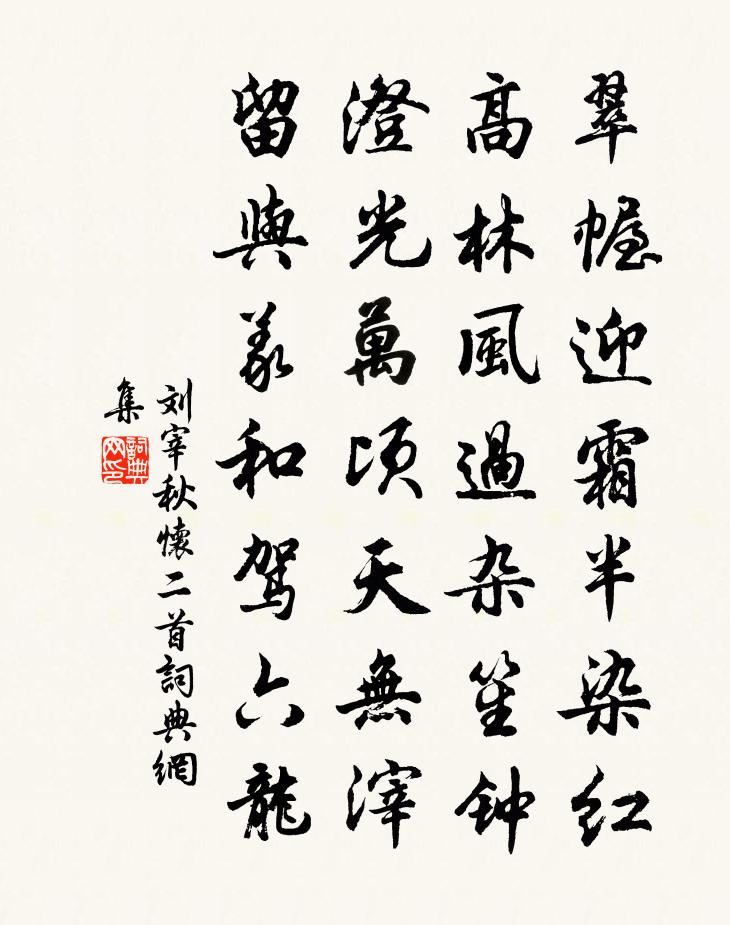 翠幄迎霜半染红
高林風過杂笙钟
澄光萬頃天無滓
留與羲和駕六龍
刘宰秋懷二首詞典網
集
詞典網印